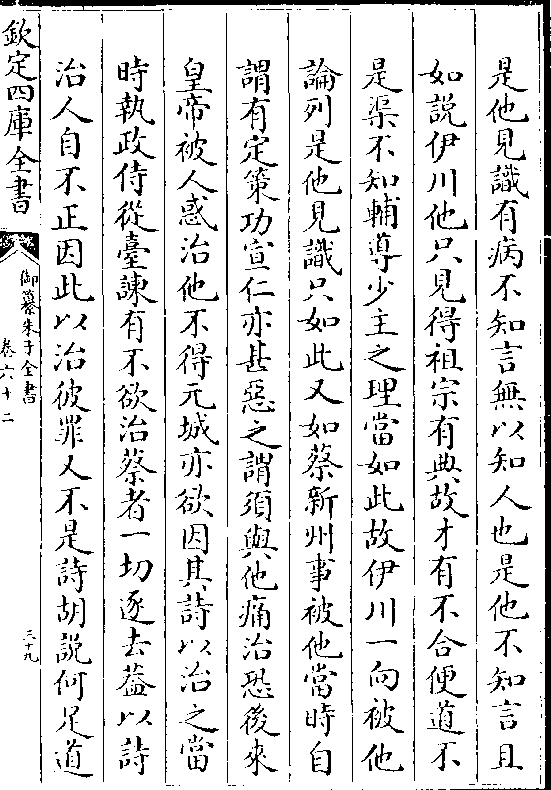 是他見識有病不知言無以知人也是他不知言且
如説伊川他只見得祖宗有典故才有不合便道不
是渠不知輔導少主之理當如此故伊川一向被他
論列是他見識只如此又如蔡新州事被他當時自
謂有定策功宣仁亦甚惡之謂須與他痛治恐後來
皇帝被人惑治他不得元城亦欲因其詩以治之當
時執政侍從臺諫有不欲治蔡者一切逐去葢以詩
治人自不正因此以治彼罪人不是詩胡説何足道
欽定四庫全書
御纂朱子全書
卷六十二
三十九